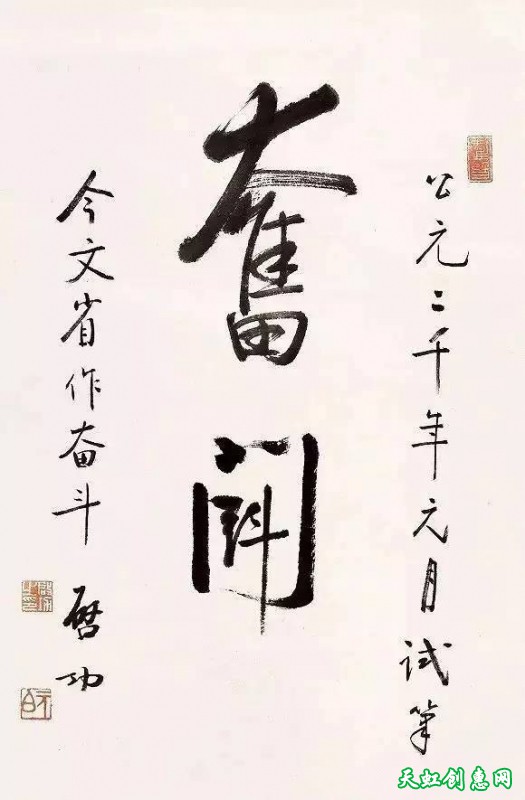 公元二千年元月试筆
奮
閗
今文省作奋斗
启功
元白
天虹创惠网